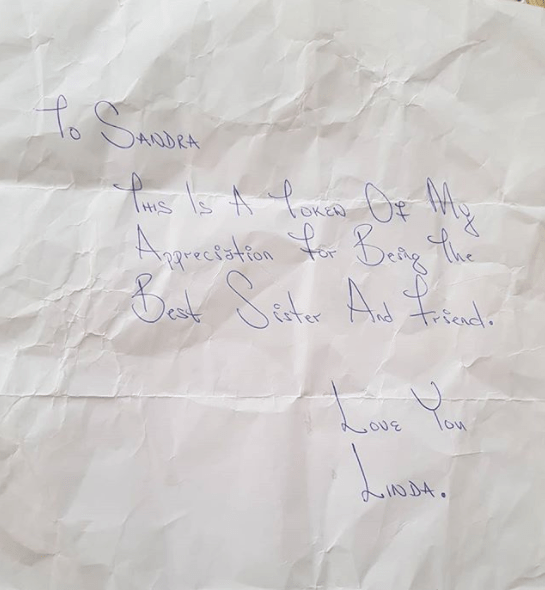 To SANDRA
THIS Is A TOKEN Of My
Appreciation For Being The
Best Sister And Friend.
LOVE You
LINDA.